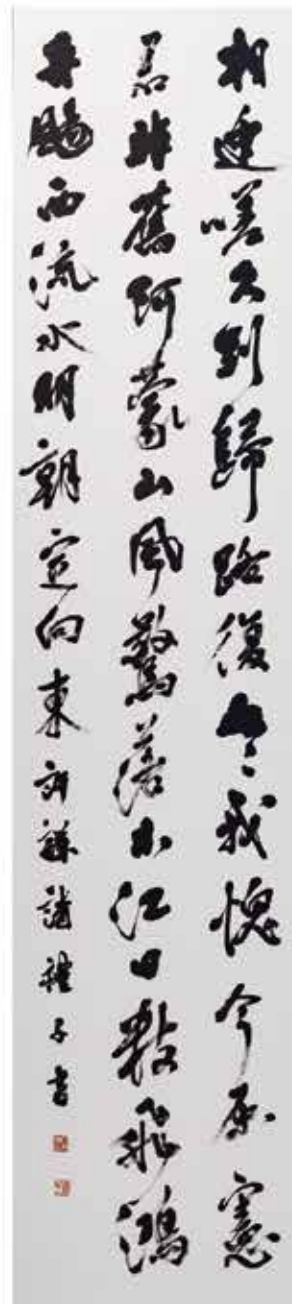 相逢嗟久別歸路復匆〻我愧今原憲
君非舊阿蒙山風驚落木江日數飛鴻
舟颺西流水明朝定向東詩子書